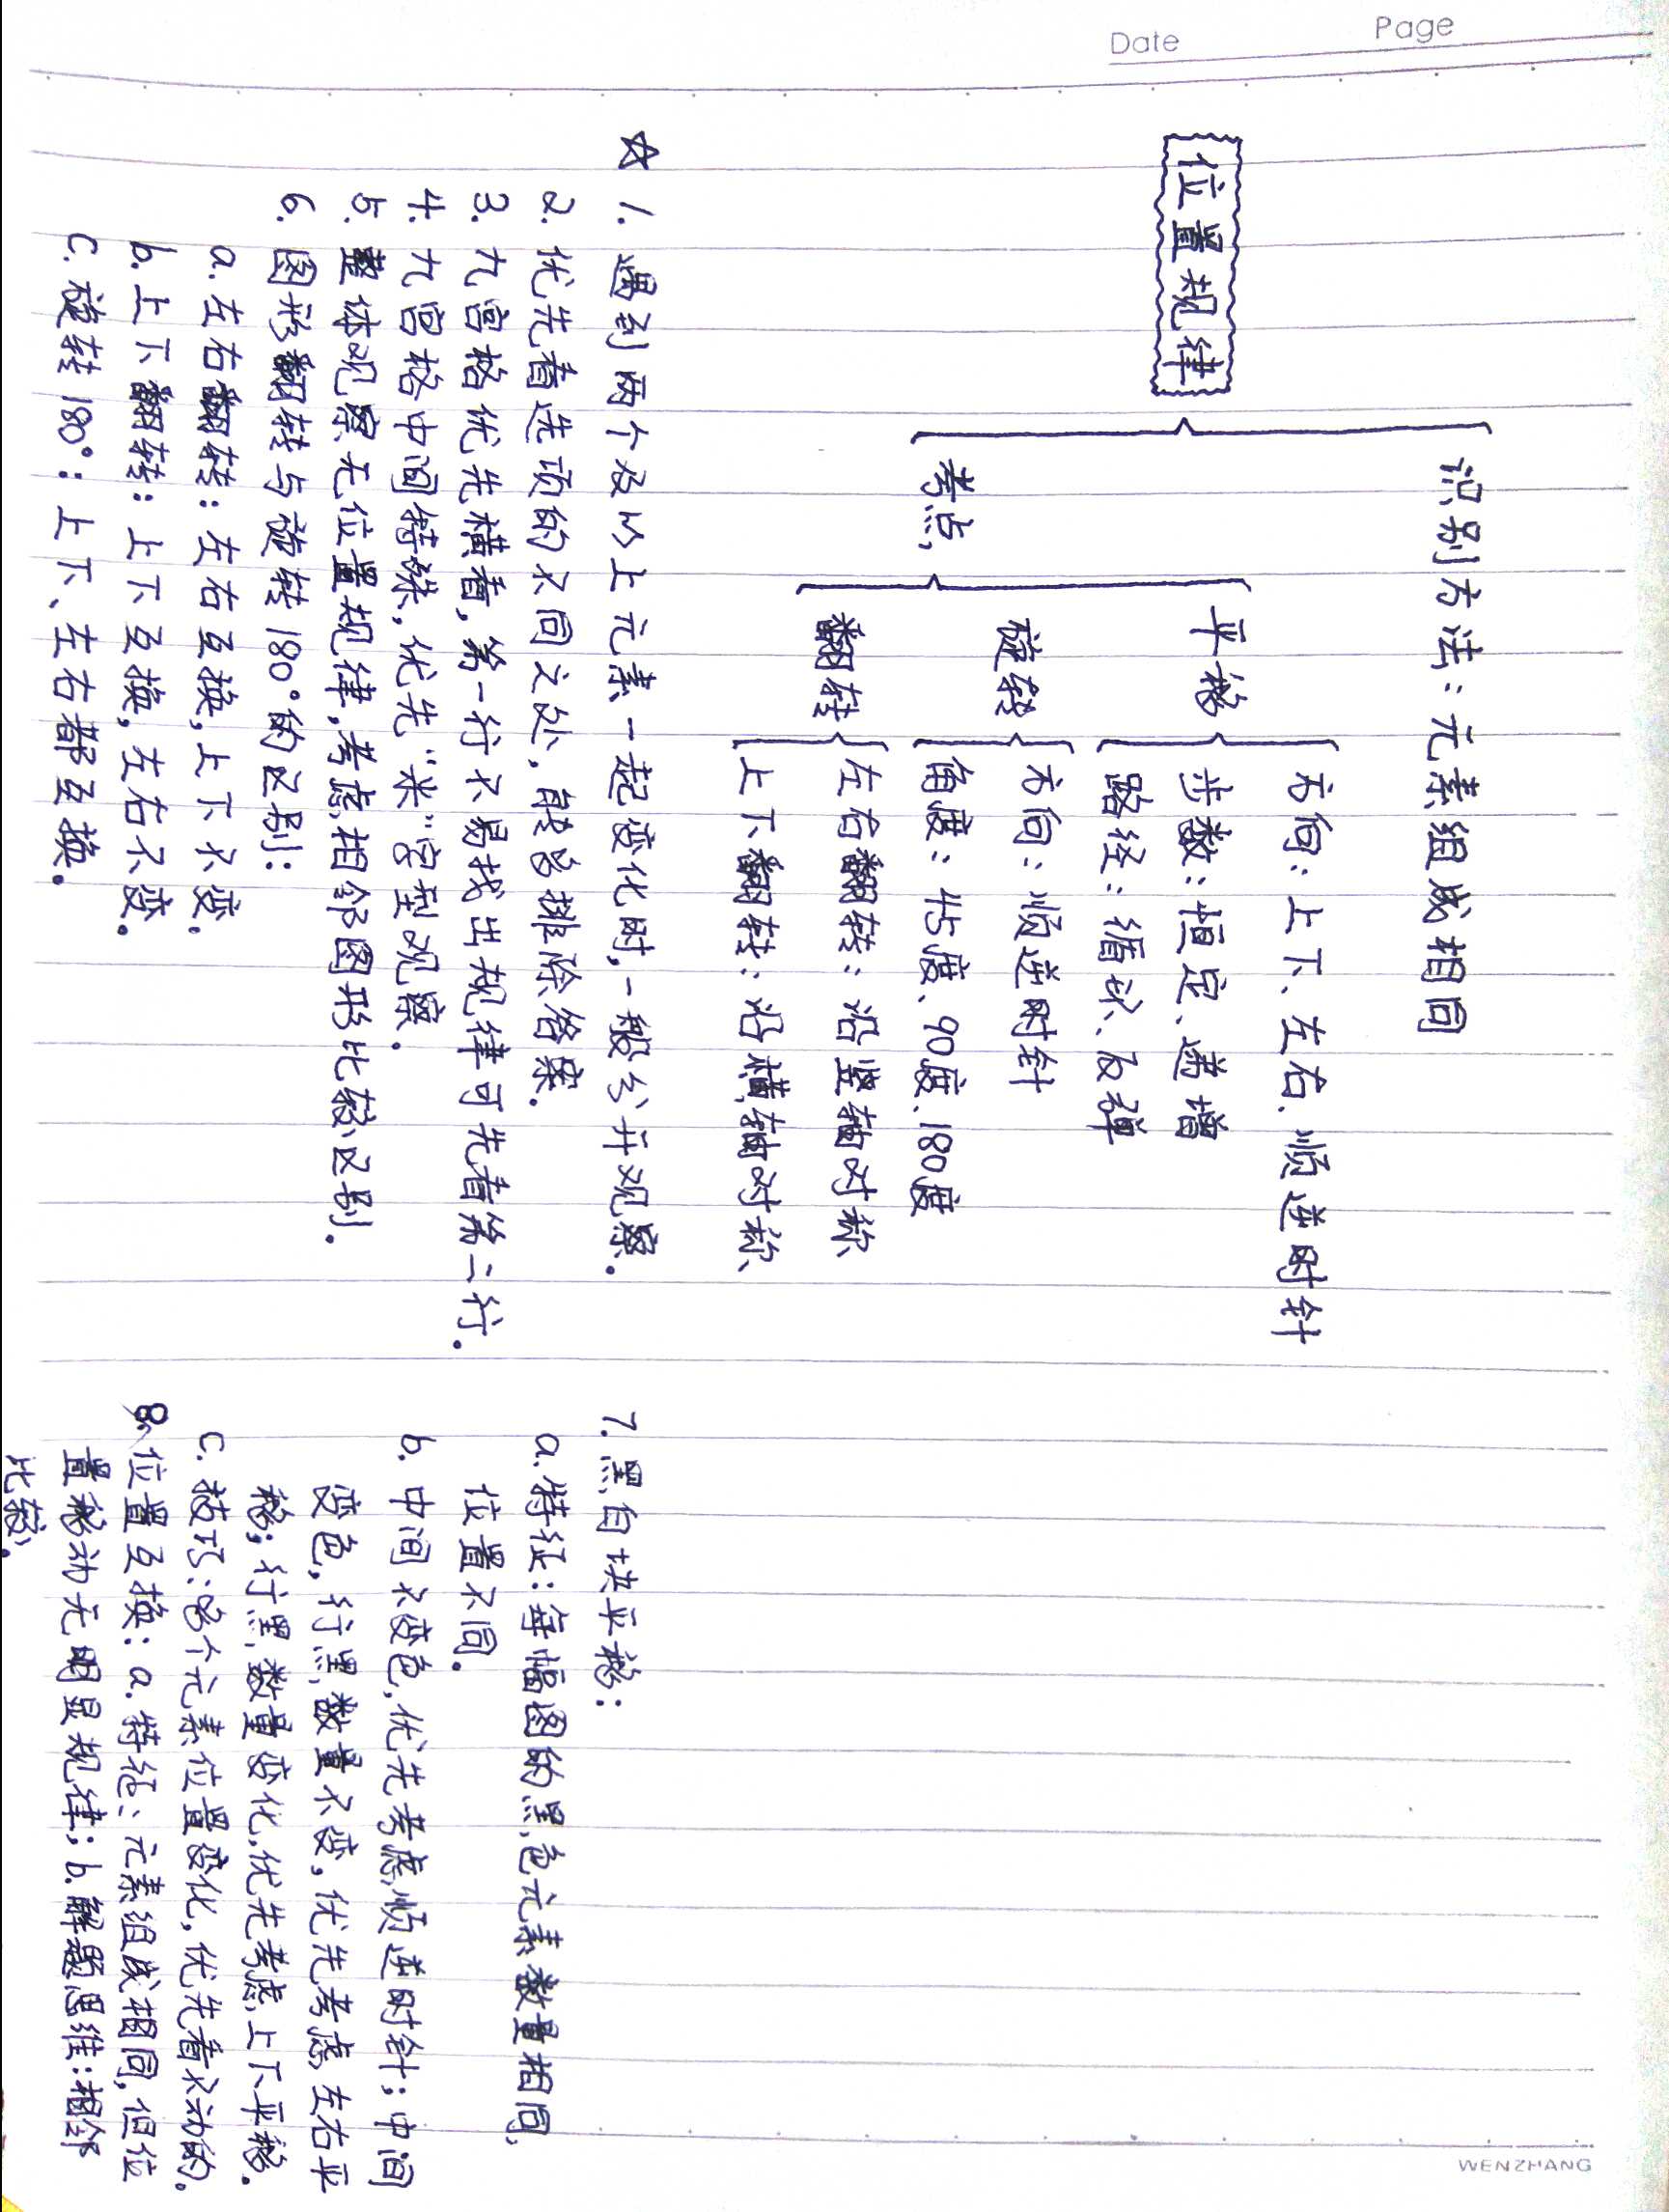 Date
Page
位置规律
识别方法：元素组成相同
考点
平移
方向：上下、左右、顺逆时针
步数：恒定、递增
路径：循环、反弹
旋转
方向：顺逆时针
角度：45度、90度、180度
翻转
左右翻转：沿竖轴对称
上下翻转：沿横轴对称
☆ 1. 遇到两个及以上元素一起变化时，一般分开观察。
2. 优先看选项的不同之处，能否排除答案。
3. 九宫格优先横看，第一行不易找出规律可先看第二行。
4. 九宫格中间特殊，优先“米”字型观察。
5. 整体观察无位置规律，考虑相邻图形比较区别。
6. 图形翻转与旋转180°的区别：
a. 左右翻转：左右互换，上下不变。
b. 上下翻转：上下互换，左右不变。
c. 旋转180°：上下、左右都互换。
7. 黑白块平移：
a. 特征：每幅图的黑色元素数量相同，
位置不同。
b. 中间不变色，优先考虑顺逆时针；中间
变色，行黑数量不变，优先考虑左右平
移；行黑数量变化，优先考虑上下平移。
c. 技巧：多个元素位置变化，优先看不动的。
8、位置互换：a. 特征：元素组成相同，但位
置移动无明显规律；b. 解题思维：相邻
比较。
WENZHANG